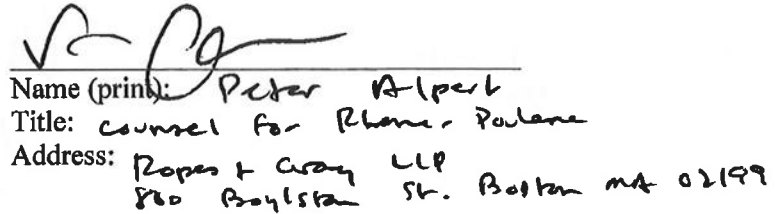 Name (print): Peter Alpert
Title: Counsel for Rhone-Poulenc
Address: Ropes & Gray LLP
800 Boylston St. Boston MA 02199